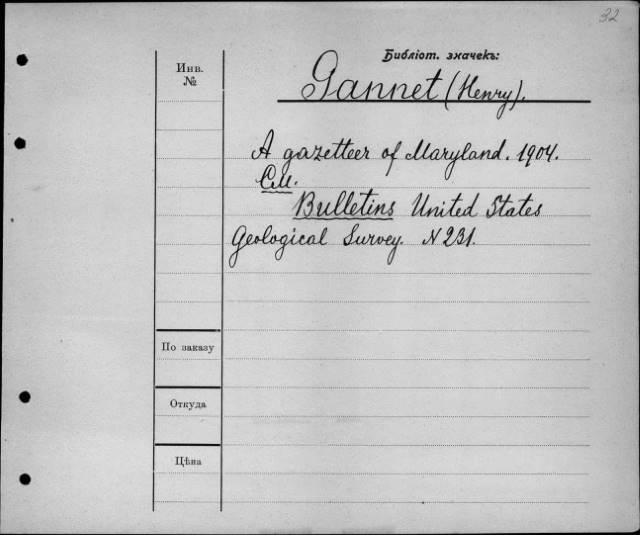 32
Библіот. значекъ:
Инв.
№
Gannet (Henry).
A gazetteer of Maryland. 1904.
См.
Bulletins United States
Geological Survey. N 231.
По заказу
Откуда
Цѣна